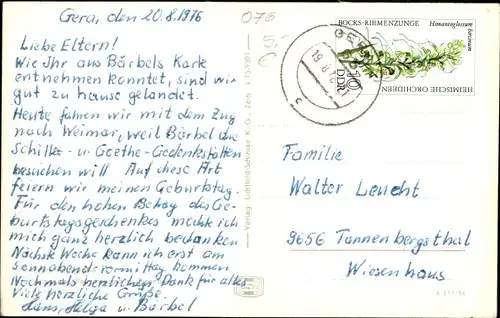 Gera, den 20.8.1976
Liebe Eltern!
Wie Ihr aus Bärbels Karte
entnehmen konntet, sind wir
gut zu hause gelandet.
Heute fahren wir mit dem Zug
nach Weimar, weil Bärbel die
Schiller- u. Goethe-Gedenkstätten
besuchen will. Auf diese Art
feiern wir meinen Geburtstag.
Für den hohen Betrag des Ge-
burtstagsgeschenkes möchte ich
mich ganz herzlich bedanken
Nächste Woche kann ich erst am
Sonnabend-vormittag kommen
Nochmals herzlichen Dank für alles
Viele herzliche Grüße.
Hans, Helga u. Bärbel
076
5,-
Verlag: Lichtbild-Schincke K.-G., Zeitz
GERA
19.8.76
c
BOCKS-RIEMENZUNGE
Himantoglossum hircinum
HEIMISCHE ORCHIDEEN
10
DDR
Familie
Walter Leucht
9656 Tannenbergsthal
Wiesenhaus